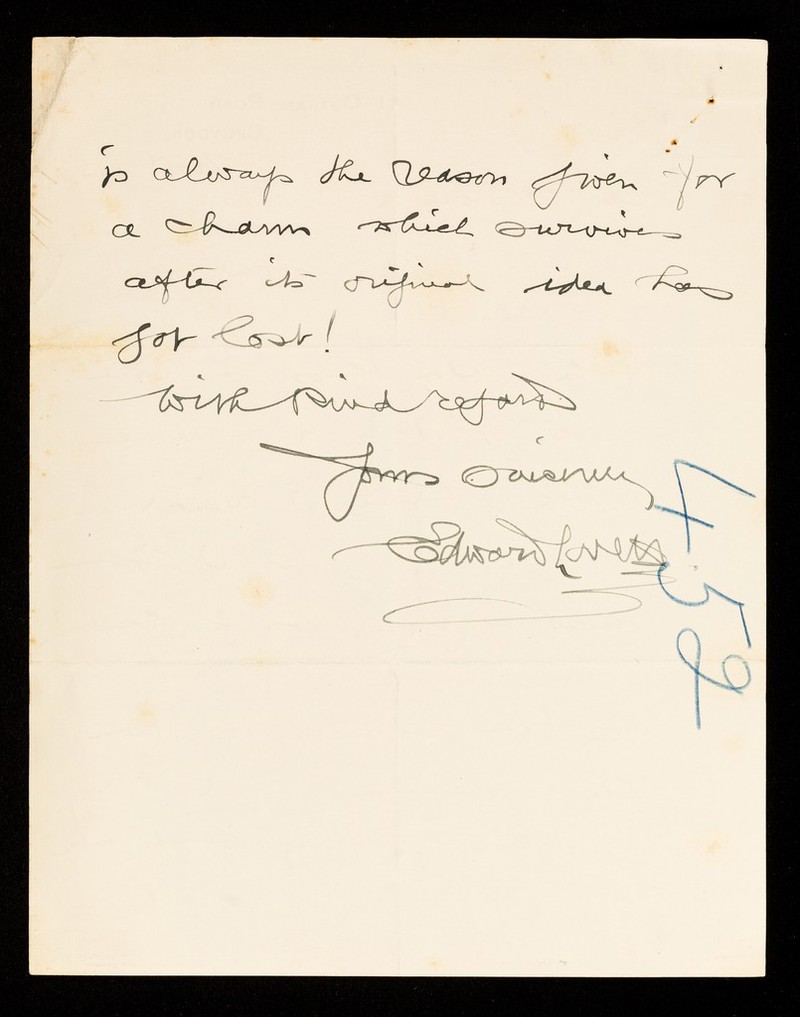 is always the reason given for
a charm which survives
after its original idea has
got lost!
With kind regards
Yours sincerely
Edward Lovett
452